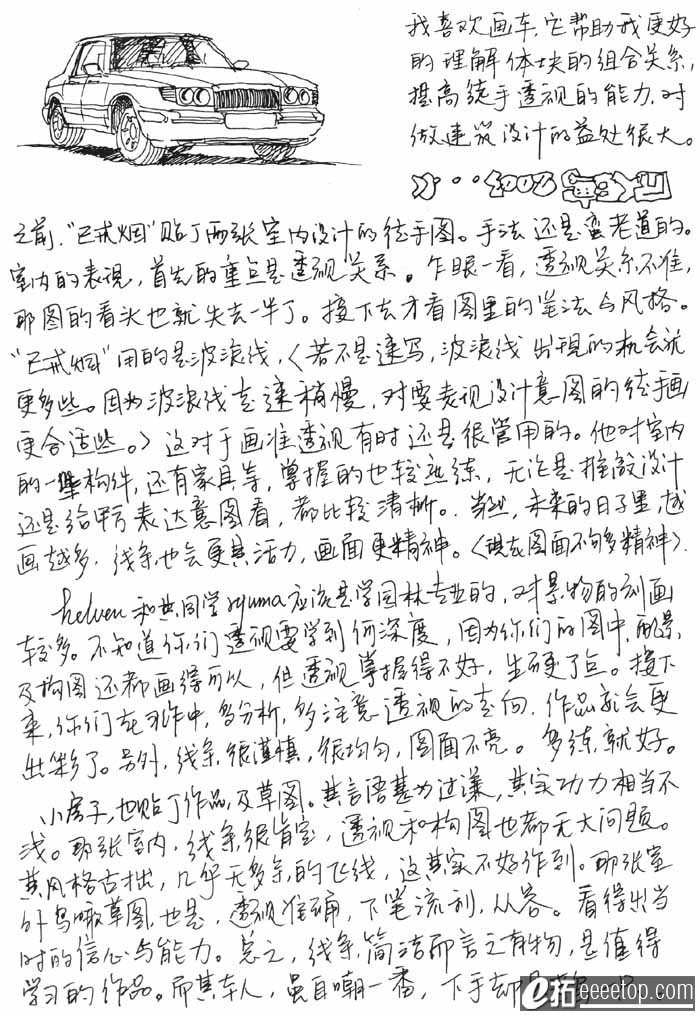 我喜欢画车.它帮助我更好
的理解体块的组合关系,
提高徒手透视的能力.对
做建筑设计的益处很大。
之前."已戒烟"贴了两张室内设计的徒手图。手法还是蛮老道的。
室内的表现,首先的重点是透视关系。乍眼一看,透视关系不准,
那图的看头也就失去一半了。接下去才看图里的笔法与风格。
"已戒烟"用的是波浪线,〈若不是速写,波浪线出现的机会就
更多些。因为波浪线走速稍慢,对要表现设计意图的徒手画
更合适些。〉这对于画准透视有时还是很管用的。他对室内
的一些构件,还有家具等,掌握的也较熟练,无论是推敲设计
还是给甲方表达意图看,都比较清晰。当然,未来的日子里,越
画越多.线条也会更具活力,画面更精神。〈现在图面不够多精神〉.
helven和其同学ryuma应该是学园林专业的,对景物的刻画
较多。不知道你们透视要学到何深度,因为你们的图中,配景,
及构图还都画得可以,但透视掌握得不好,生硬了点。接下
来,你们在习作中,多分析,多注意透视的走向.作品就会更
出彩了。另外,线条很谨慎,很均匀,图面不亮。多练就好。
小房子,也贴了作品及草图。其言语甚为过谦,其实功力相当不
浅。那张室内.线条很肯定,透视和构图也都无大问题。
其风格古拙,几乎无多余的飞线,这其实不好作到。那张室
外鸟瞰草图.也是,透视准确,下笔流利,从容。看得出当
时的信心与能力。总之,线条简洁而言之有物,是值得
学习的作品。而其本人,虽自嘲一番,下手却
e拓eeeetop.com